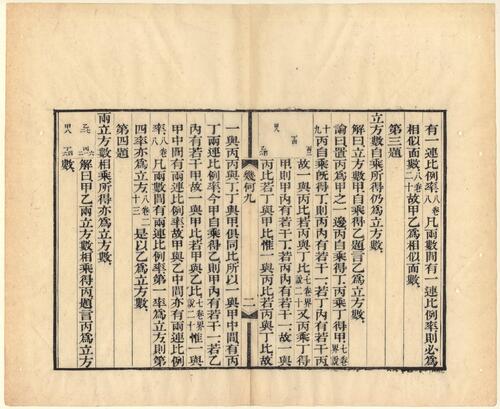 有一連比例率八卷八凡兩數間有一連比例率則必爲
相似面數八卷二十故甲乙爲相似面數
第三題
立方數自乘所得仍爲立方數
解曰立方數甲自乘得乙題言乙爲立方數
論曰置丙爲甲之一邊丙自乘得丁丙乘丁得甲七卷界說
十九丙自乘旣得丁則丙內有若干一若丁內有若干丙
故一與丙比若丙與丁比七卷界說二十又丙乘丁得
甲則甲內有若干丁若丙內有若干一故一與
丙比若丁與甲比惟一與丙比若丙與丁比故
幾何九
二
一與丙丙與丁丁與甲俱同比所以一與甲中間有丙
丁兩連比例率今甲自乘得乙則甲內有若干一若乙
內有若干甲故一與甲比若甲與乙比七卷界說二十惟一與
甲中間有兩連比例率故甲與乙中間亦有兩連比例
率八卷八凡兩數間有兩連比例率第一率爲立方則第
四率亦爲立方八卷二十三是以乙爲立方數
第四題
兩立方數相乘所得亦爲立方數
解曰甲乙兩立方數相乘得丙題言丙爲立方
數